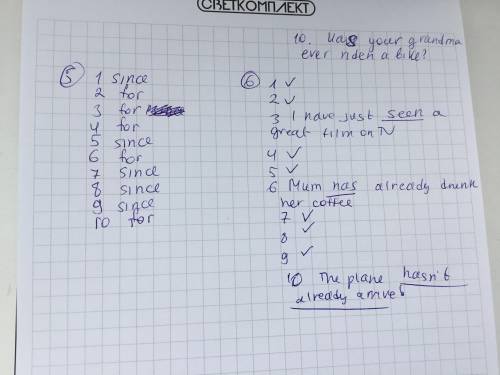 СВЕТКОМПЛЕКТ
10. Has your grandma
ever riden a bike?
5
1 since
2 for
3 for
4 for
5 since
6 for
7 since
8 since
9 since
10 for
6
1 ✓
2 ✓
3 I have just seen a
great film on TV
4 ✓
5 ✓
6 Mum has already drunk
her coffee
7 ✓
8 ✓
9 ✓
10 The plane hasn't
already arrive